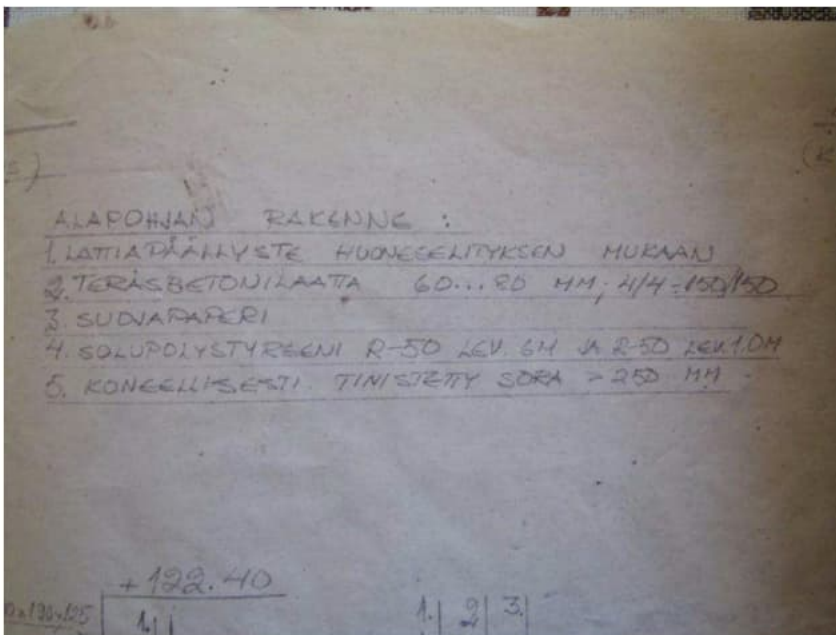 ALAPOHJAN RAKENNE :
1. LATTIAPÄÄLLYSTE HUONESELITYKSEN MUKAAN
2. TERÄSBETONILAATTA 60...80 MM; 4/4-150/150
3. SUOJAPAPERI
4. SOLUPOLYSTYREENI R-50 LEV. 6M JA R-50 LEV. 1.0M
5. KONEELLISESTI TIIVISTETTY SORA > 250 MM
+122.40
1. 2 3.
1.